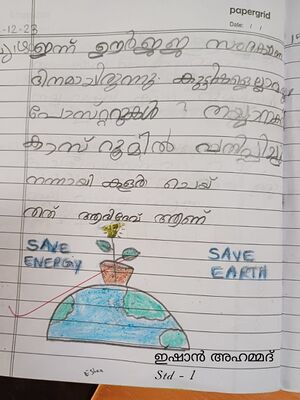 papergrid
Date: / /
-12-23
ഇന്ന് ഊർജ്ജ സംരക്ഷണ
ദിനമായിരുന്നു. കുട്ടികളെല്ലാവരും
പോസ്റ്ററുകൾ തയ്യാറാക്കി
ക്ലാസ് റൂമിൽ പതിപ്പിച്ചു
നന്നായി കളർ ചെയ്
തത് ആയിരുന്നു ആണ്
SAVE ENERGY
SAVE EARTH
ഇഷാൻ അഹമ്മദ്
Std - 1